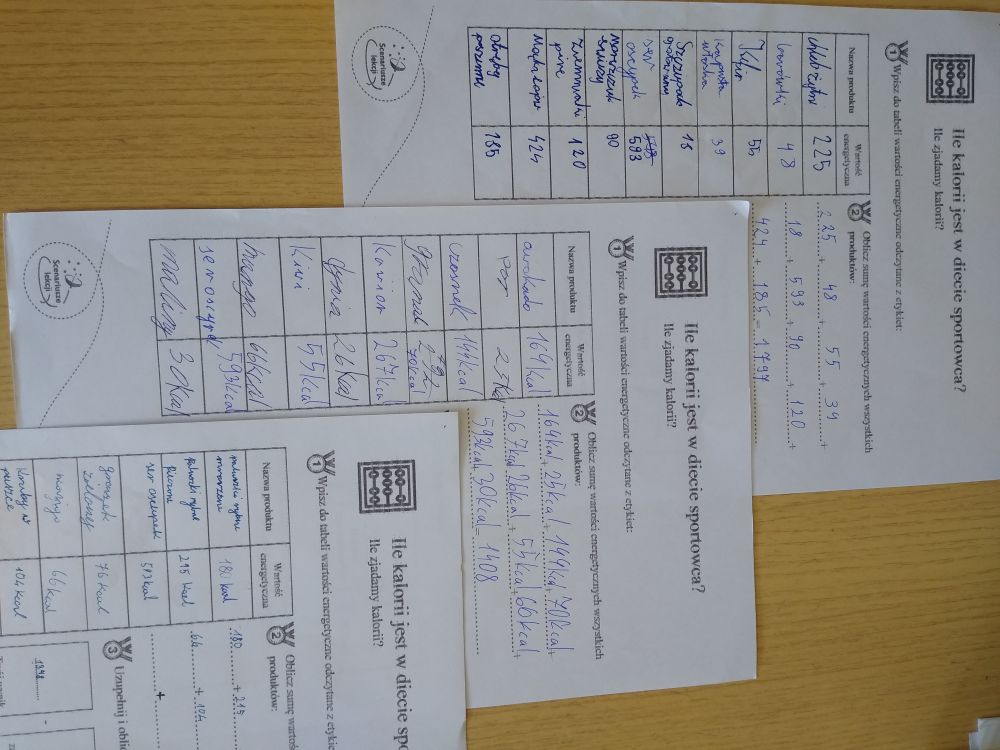 Ile kalorii jest w diecie sportowca?
Ile zjadamy kalorii?
1 Wpisz do tabeli wartości energetyczne odczytane z etykiet:
Nazwa produktu Wartość energetyczna
chleb żytni 225
borówki 48
Kefir 55
kapusta włoska 39
18
ser oscypek 593
90
ziemniaki pire 120
424
otręby pszenne 185
2 Oblicz sumę wartości energetycznych wszystkich
produktów:
225 + 48 + 55 + 39 +
18 + 593 + 90 + 120 +
424 + 185 = 1797
Scenariusze
lekcji
Ile kalorii jest w diecie sportowca?
Ile zjadamy kalorii?
1 Wpisz do tabeli wartości energetyczne odczytane z etykiet:
Nazwa produktu Wartość energetyczna
awokado 169kcal
por 25kcal
czosnek 144kcal
70kcal
267kcal
26kcal
Kiwi 55kcal
mango 66kcal
593kcal
maliny 30kcal
2 Oblicz sumę wartości energetycznych wszystkich
produktów:
169kcal + 25kcal + 144kcal + 70kcal +
267kcal + 26kcal + 55kcal + 66kcal +
593kcal + 30kcal = 1408
Scenariusze
lekcji
Ile kalorii jest w diecie spo
Ile zjadamy kalorii?
1 Wpisz do tabeli wartości energetyczne odczytane z etykie
Nazwa produktu Wartość energetyczna
paluszki rybne mrożone 180 kcal
paluszki rybne 215 kcal
ser oscypek 593kcal
groszek zielony 76kcal
mango 66kcal
104kcal
2 Oblicz sumę warto
produktów:
180 + 215
66 + 104
+
3 Uzupełnij i obli